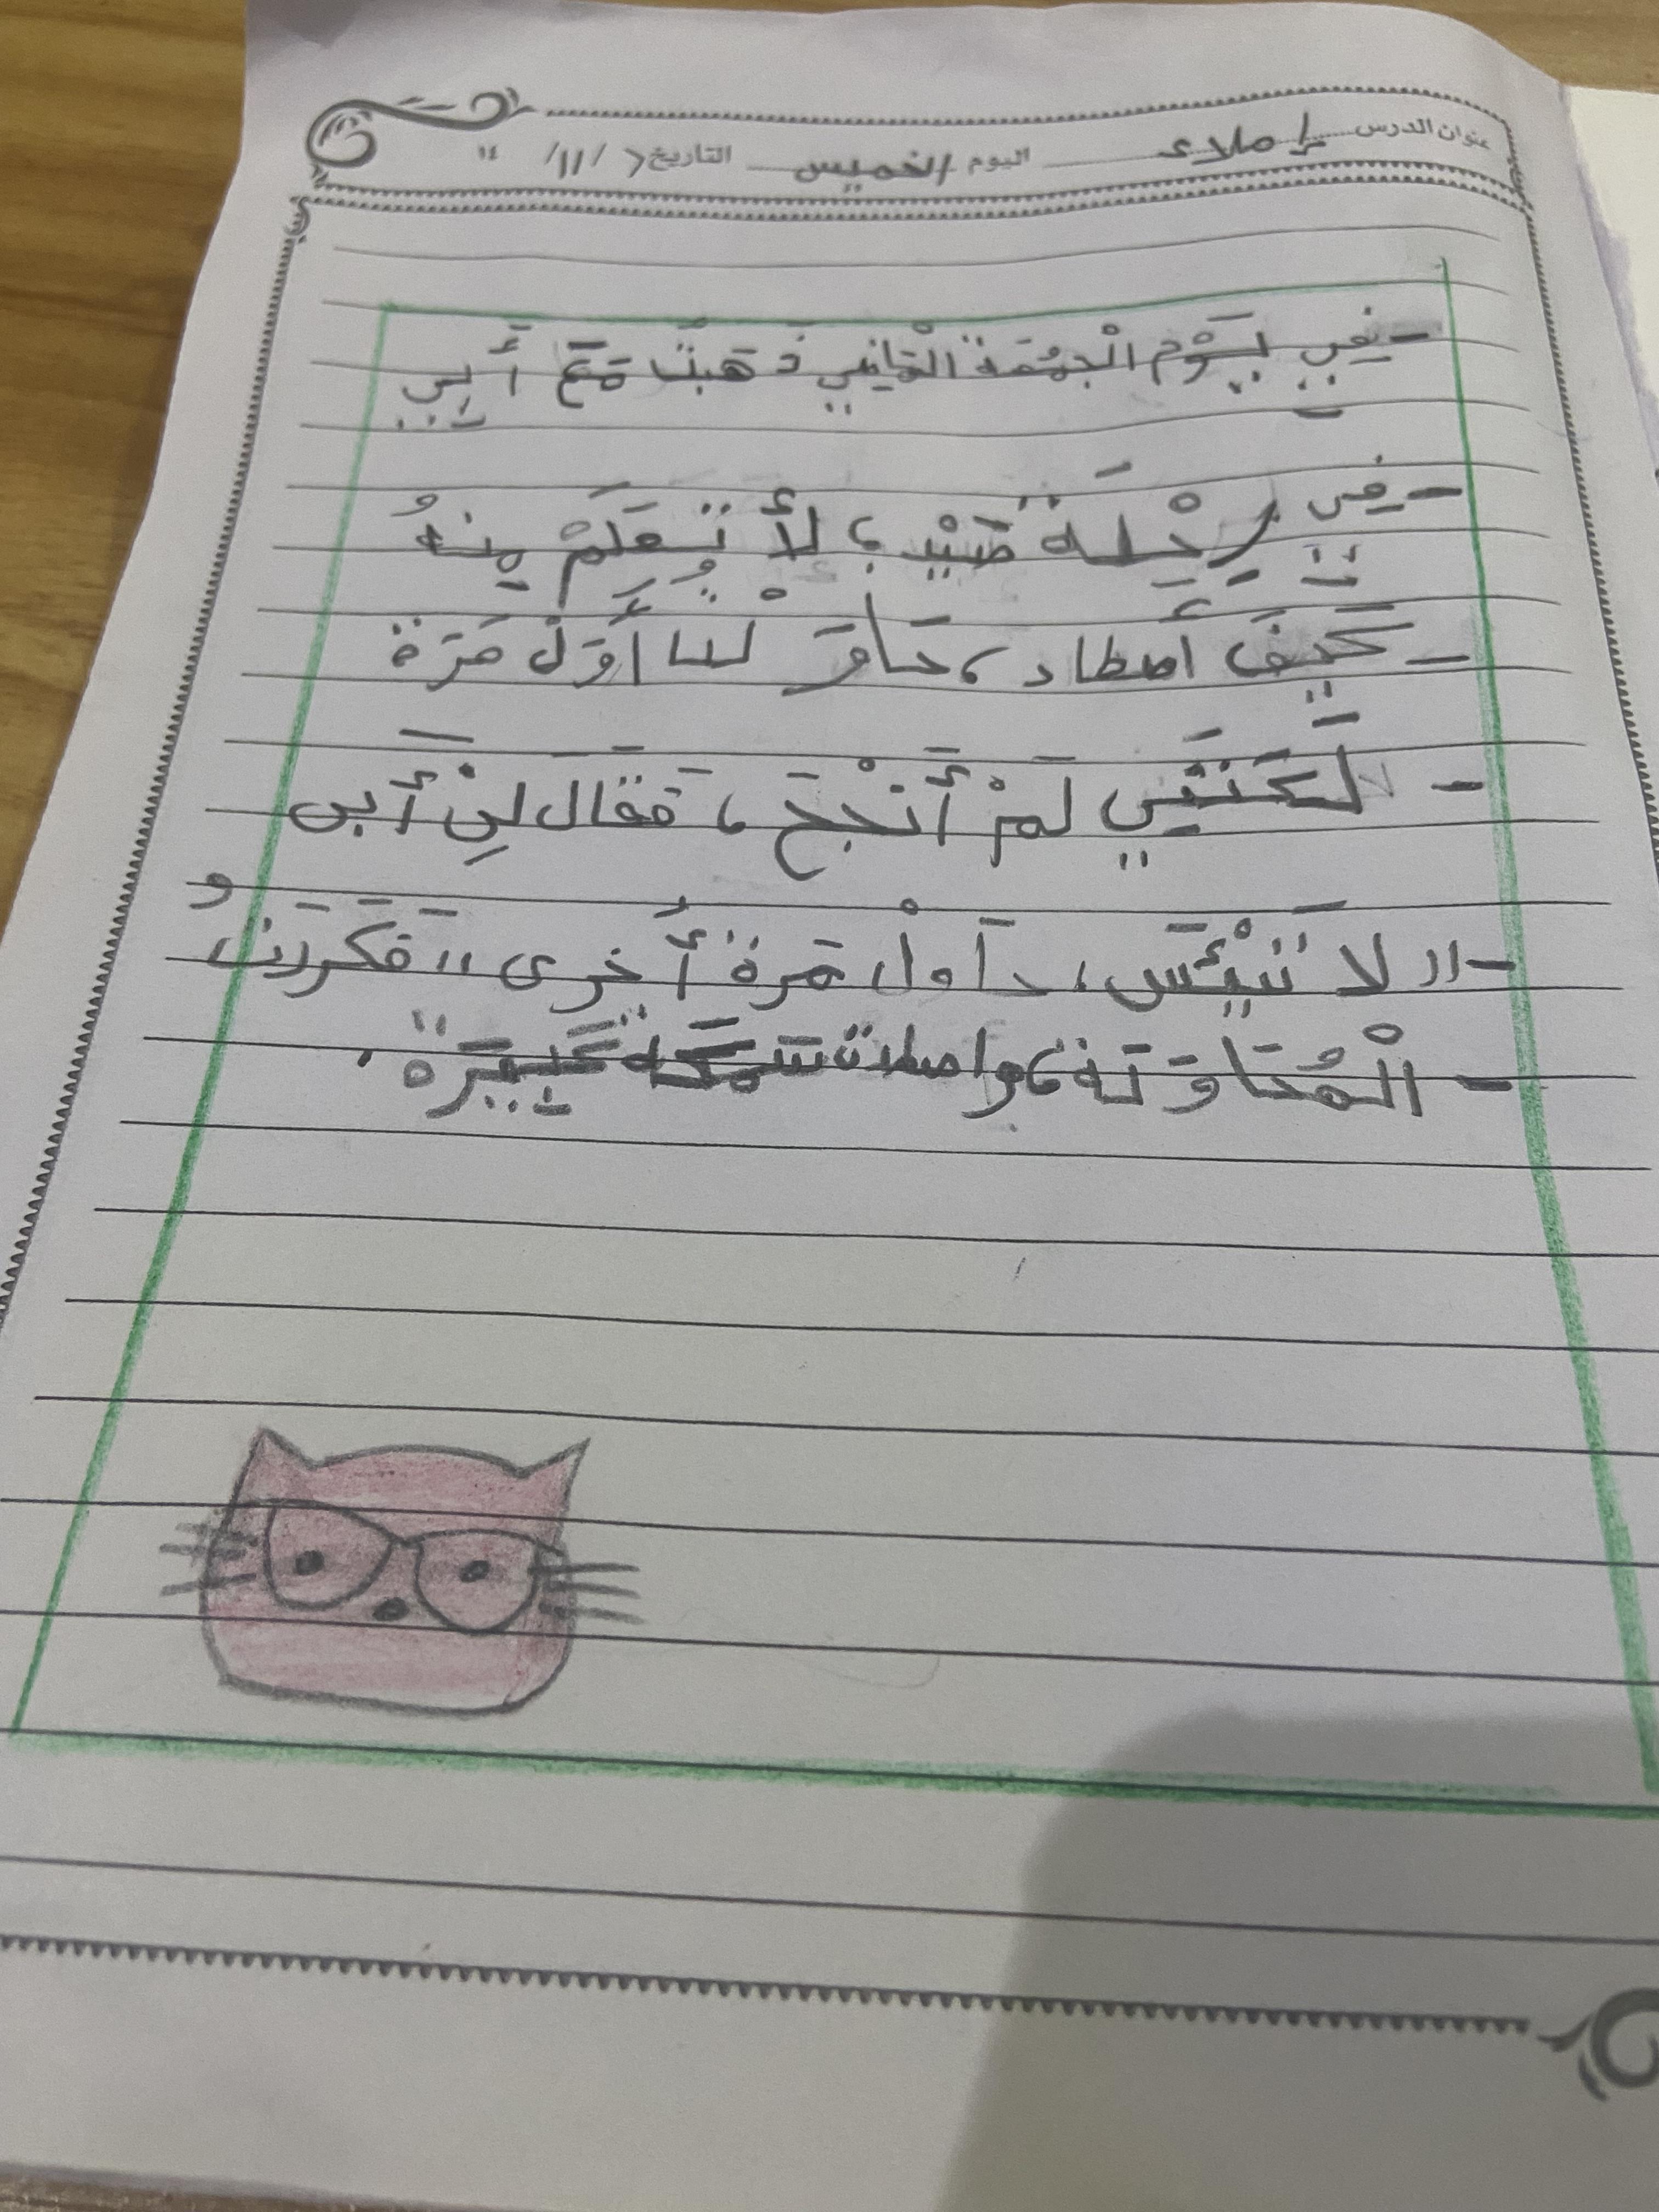 عنوان الدرس إملاء اليوم الخميس التاريخ ٢ / ١١ / ١٤
- في يَوْم الْجمُعَة الْثاني ذَهبتُ مَعَ أَبِي
- في رِحْلة صَيْد، لأَ تَعَلَمْ مِنهُ
- كَيفَ أَصطاد، حَاوَ لنا أَوَلْ مَرَة
- لَكَنَنِي لَمْ أَنْجَحَ، فَقَال لِيْ أَبي
- " لا تَيْئَس، حاول مَرة أُخرى " فَكَرَرَنا
- الْمُحاوَلَة، واصطادت سَمَكة كَبِيرَة.